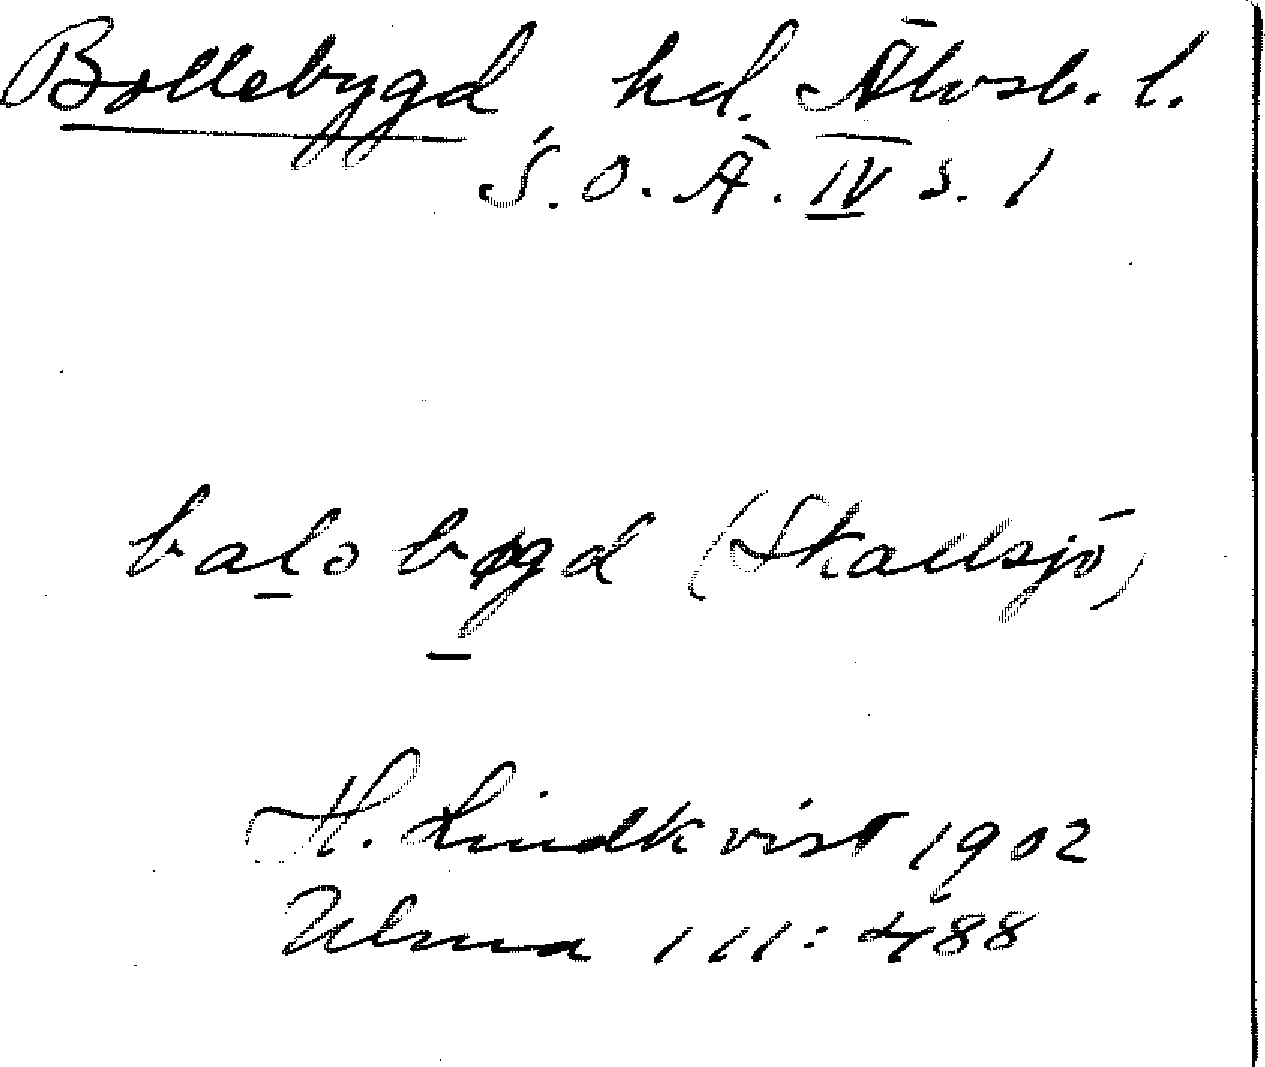 Bollebygd hd. Älvsb. l.
S.O.Ä. IV s. 1
balo bygd (Skallsjö)
H. Lindkvist 1902
Ulma 111:488